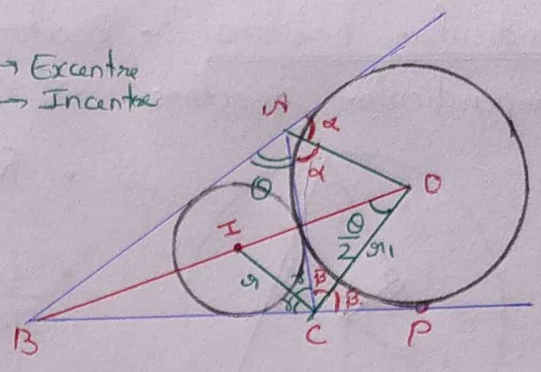 → Excentre
→ Incentre
A
α
α
θ
O
I
θ/2
r
r₁
x
x
β
β
B
C
P